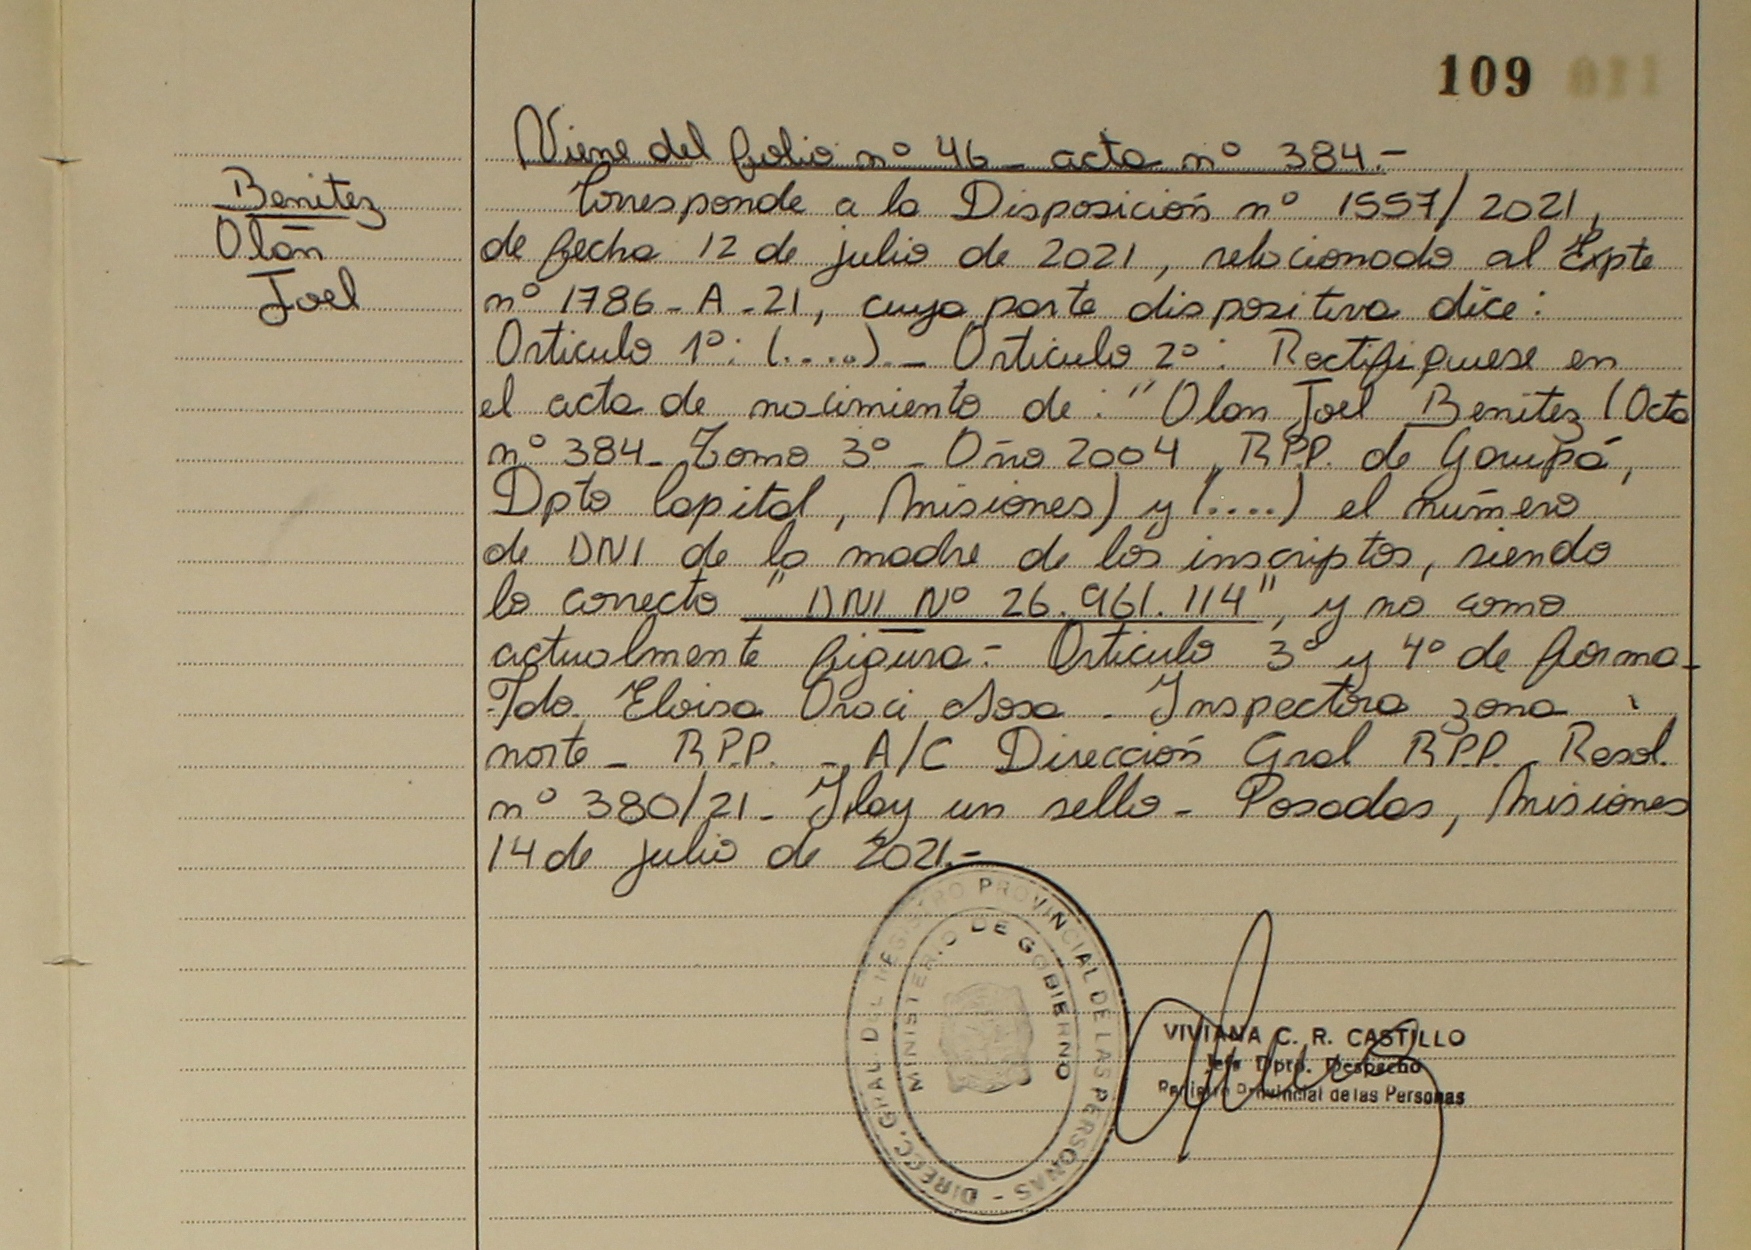 109 011
Viene del folio nº 46 - acta nº 384.-
Benitez
Alan
Joel
Corresponde a la Disposición nº 1557/2021,
de fecha 12 de julio de 2021, relacionado al Expte
nº 1786-A-21, cuya parte dispositiva dice:
Articulo 1º: (.....).- Articulo 2º: Rectifiquese en
el acta de nacimiento de: "Alan Joel Benitez (Acta
nº 384- Tomo 3º - Año 2004, RPP. de Garupá,
Dpto Capital, Misiones) y (....) el número
de DNI de la madre de los inscriptos, siendo
lo correcto "DNI Nº 26.961.114", y no como
actualmente figura.- Articulo 3º y 4º de forma-
Fdo Eloisa Araci Sosa - Inspectora zona
norte - R.P.P. - A/C Dirección Gral R.P.P. Resol.
nº 380/21- Hay un sello - Posadas, Misiones
14 de julio de 2021.-
DIRECC. GRAL. DEL REGISTRO PROVINCIAL DE LAS PERSONAS -
MINISTERIO DE GOBIERNO
VIVIANA C. R. CASTILLO
Jefe Dpto. Despacho
Registro Provincial de las Personas